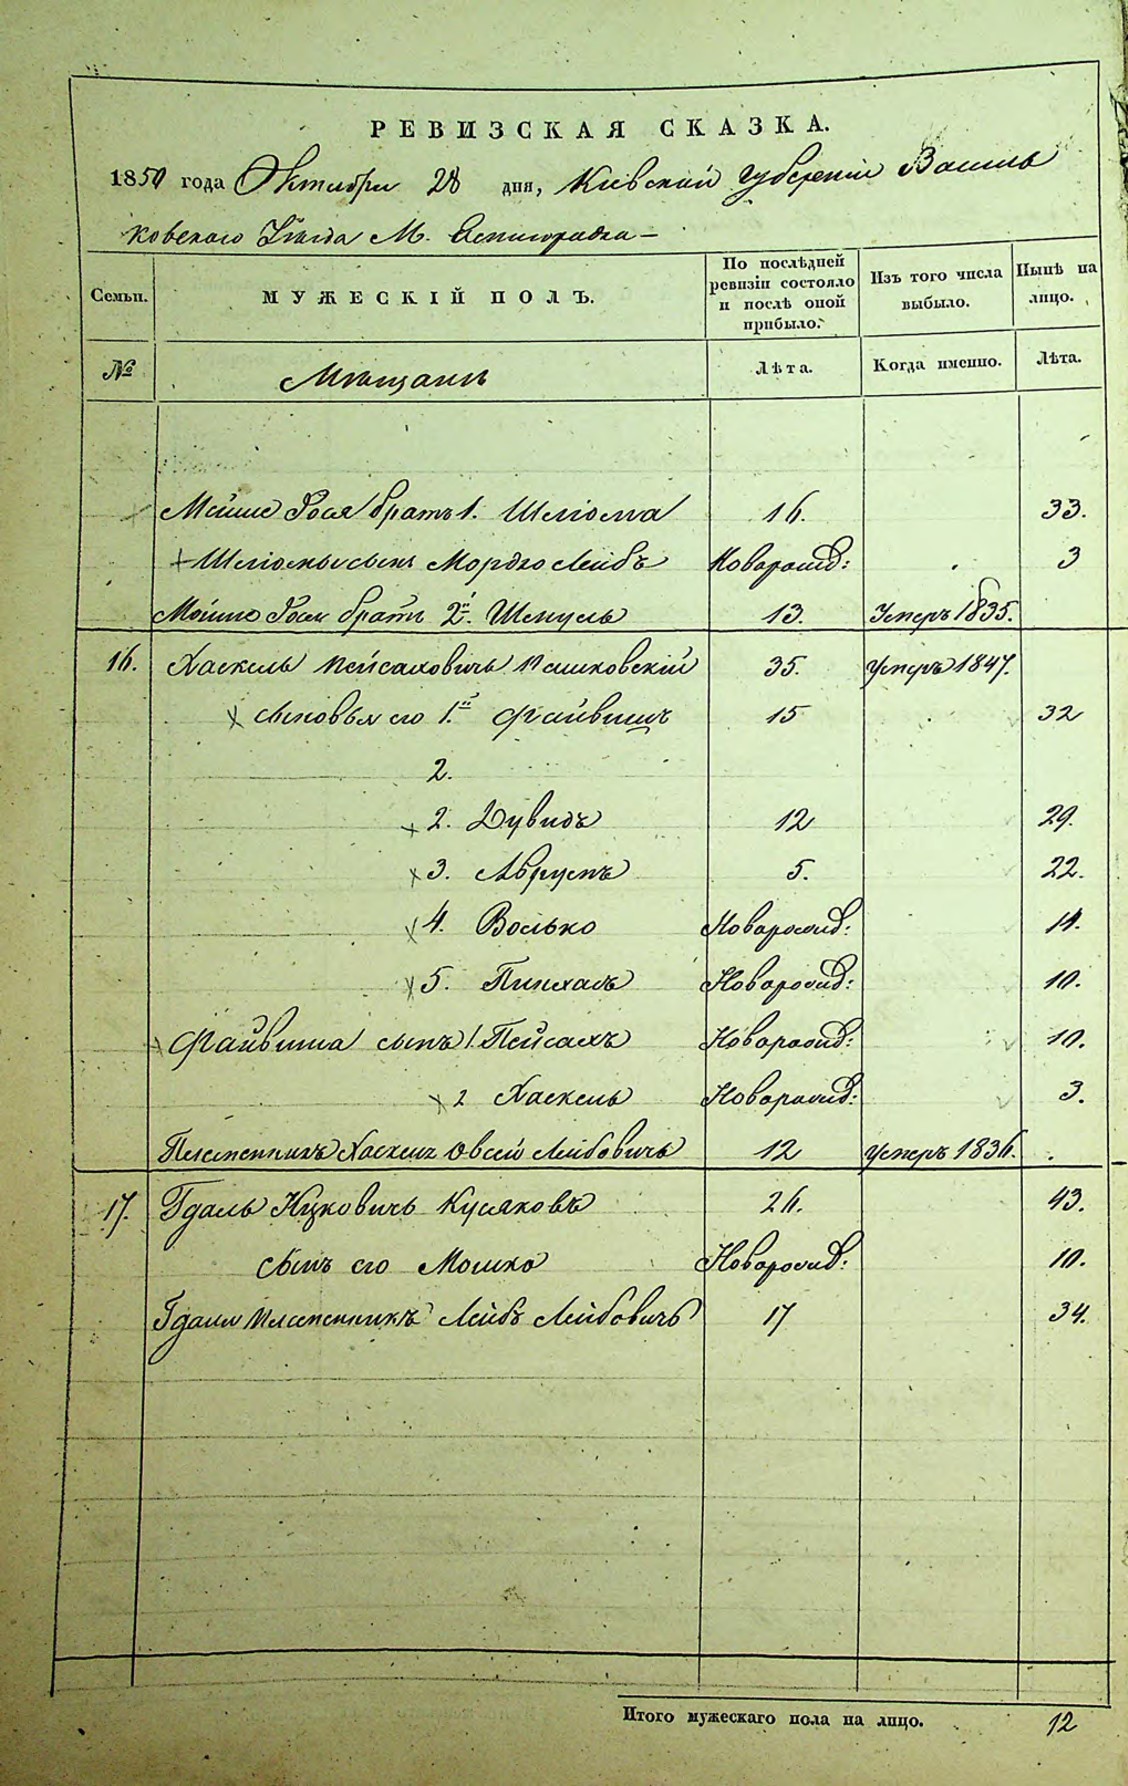 РЕВИЗСКАЯ СКАЗКА.
1850 года Октября 28 дня, Кіевской Губерніи Василь
ковского Уѣзда М. Ясногородка —
Семьи. МУЖЕСКІЙ ПОЛЪ. По послѣдней ревизіи состояло и послѣ оной прибыло. Изъ того числа выбыло. Нынѣ на лицо.
№ Мѣщане Лѣта. Когда именно. Лѣта.
Мойше братъ 1. Шліома 16. 33.
Шліомы сынъ Мордко ЛейбъНоворожд: 3
Мойше братъ 2й. Шмуль 13. Умеръ 1835.
16. Хаскель Пейсаховичъ Пашковскій 35. Умеръ 1847.
Сыновья его 1.й Файвишъ 15 32
2.
2. Дувидъ 12 29.
3. Аврумъ 5. 22.
4. Волько Новорожд: 11.
5. Пинхасъ Новорожд: 10.
Файвиша сынъ 1. Пейсахъ Новорожд: 10.
2 Хаскель Новорожд: 3.
Племенникъ Хаскеля Овсей Лейбовичъ 12 Умеръ 1836.
17. Гдаль Ицковичъ 26. 43.
Сынъ его Мошко Новорожд: 10.
Гдаля Племенникъ Лейбъ Лейбовичъ 17 34.
Итого мужескаго пола на лицо. 12